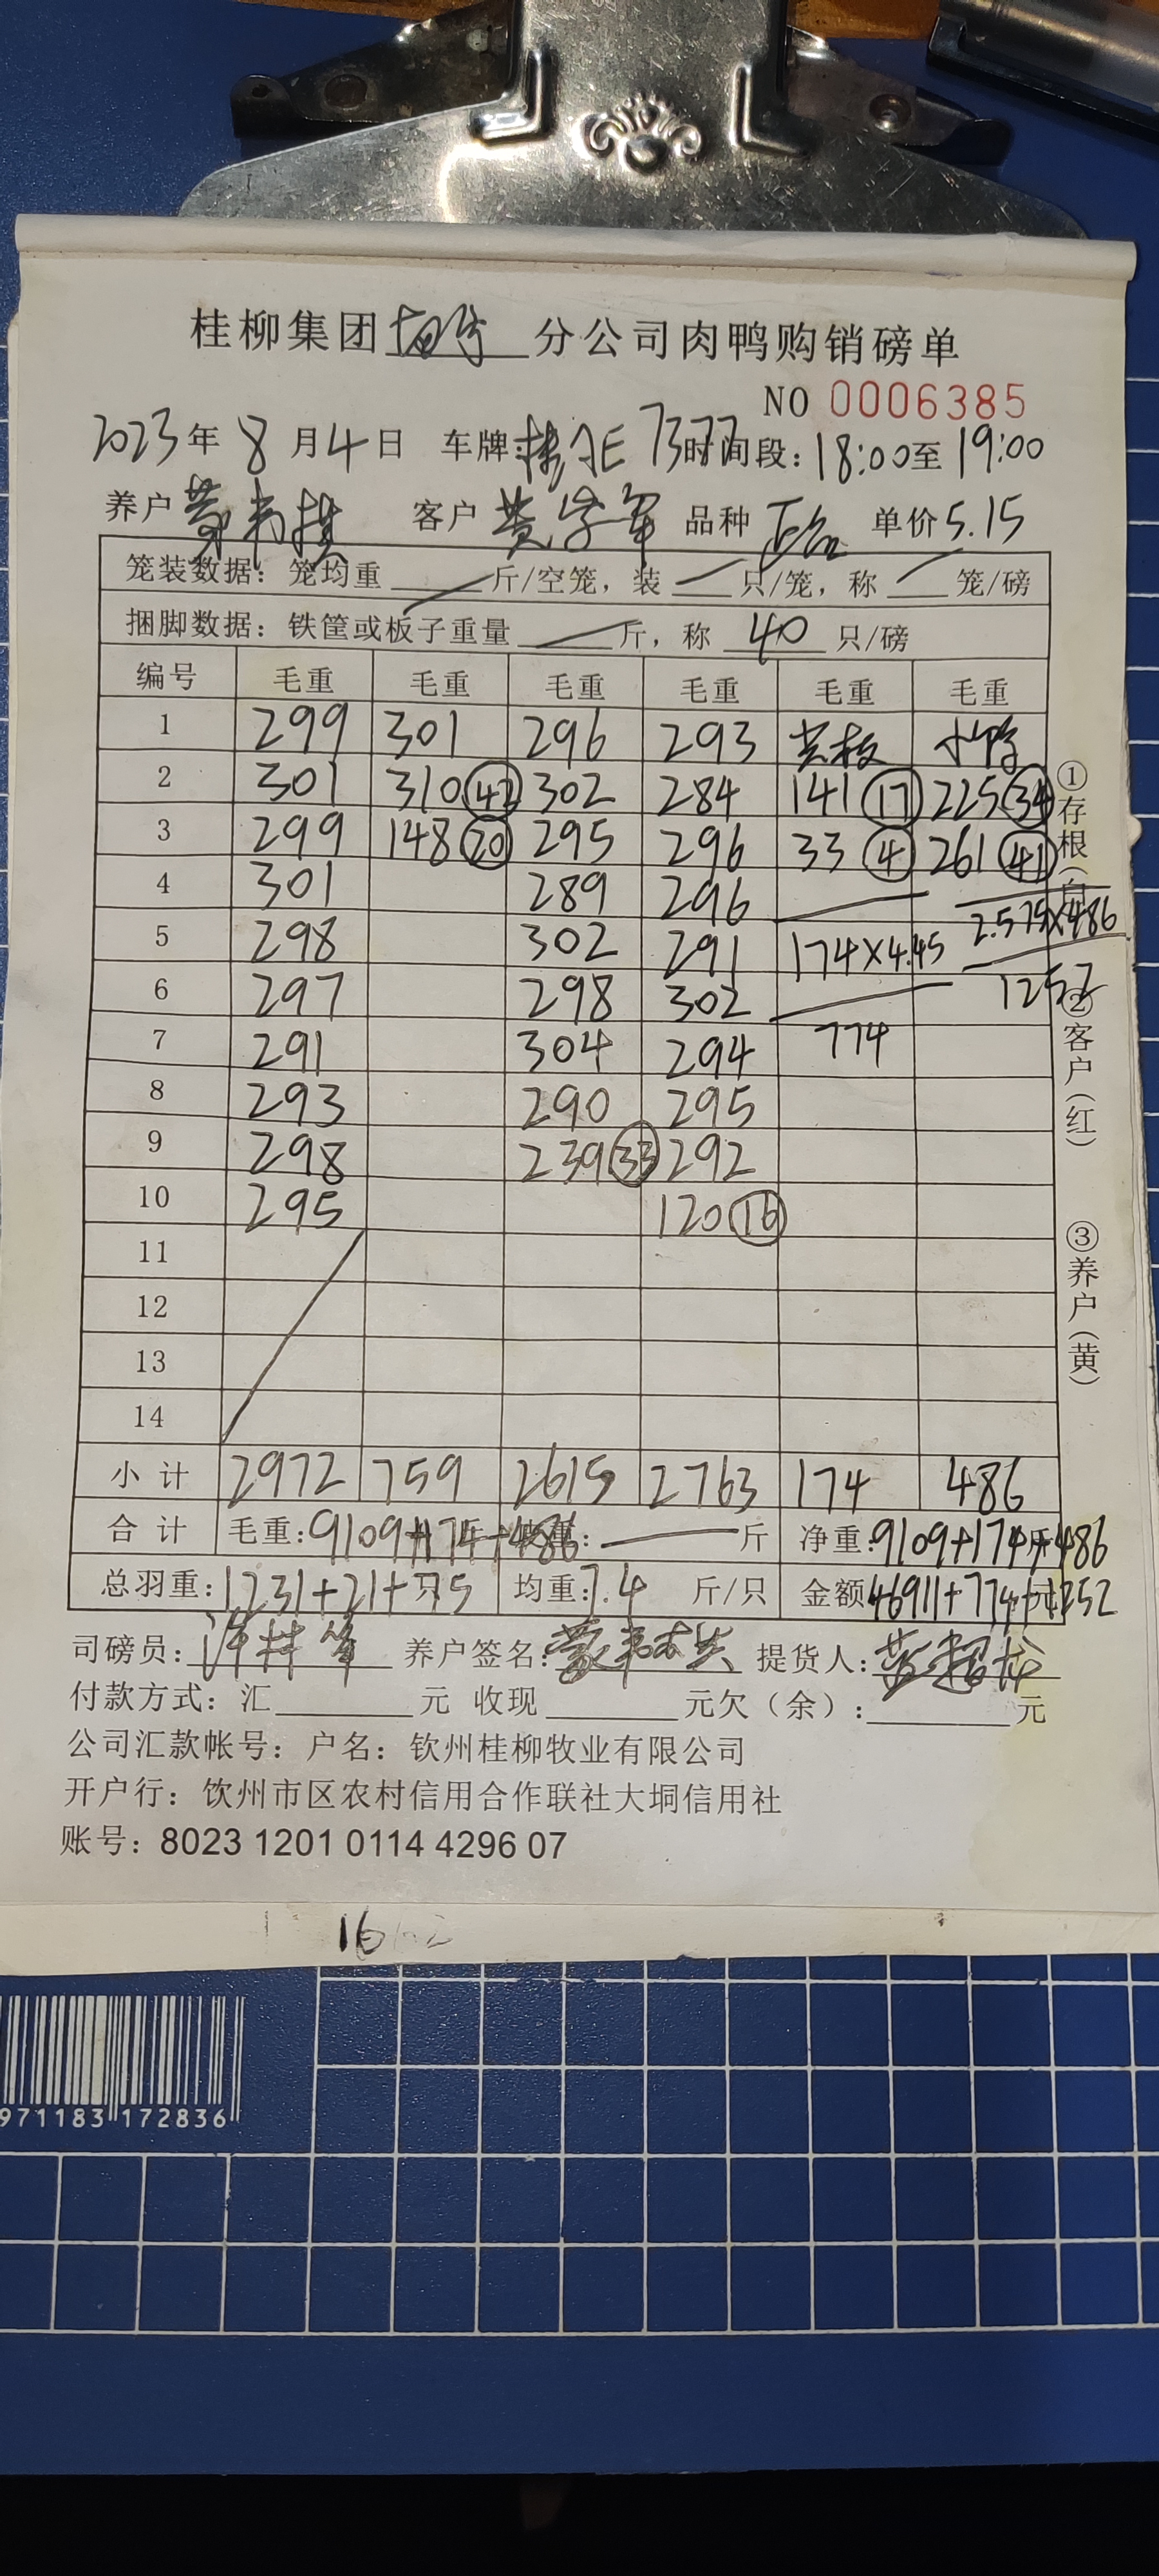 桂柳集团 分公司肉鸭购销磅单
NO 0006385
2023年8月4日 车牌:桂 E 7377 时间段:18:00至19:00
养户 客户 品种 单价5.15
笼装数据:笼均重 斤/空笼,装 只/笼,称 笼/磅
捆脚数据:铁筐或板子重量 斤,称 40 只/磅
编号 毛重 毛重 毛重 毛重 毛重 毛重
1 299 301 296 293
2 301 310 42 302 284 141 17 225 34
3 299 148 20 295 296 33 4 261 41
4 301 289 296
5 298 302 291 174×4.45 2.575×486
6 297 298 302 1252
7 291 304 294 774
8 293 290 295
9 298 239 33 292
10 295 120 16
11
12
13
14
小计 2972 759 2615 2763 174 486
合计 毛重:9109+174+486 斤 净重:9109+174+486
总羽重:1231+21+75 只 均重:7.4 斤/只 金额46911+774+1252
司磅员: 养户签名: 提货人:
付款方式:汇 元 收现 元欠(余): 元
公司汇款帐号:户名:钦州桂柳牧业有限公司
开户行:饮州市区农村信用合作联社大垌信用社
账号:8023 1201 0114 4296 07
①存根(白
②客户(红)
③养户(黄)
16
971183 172836